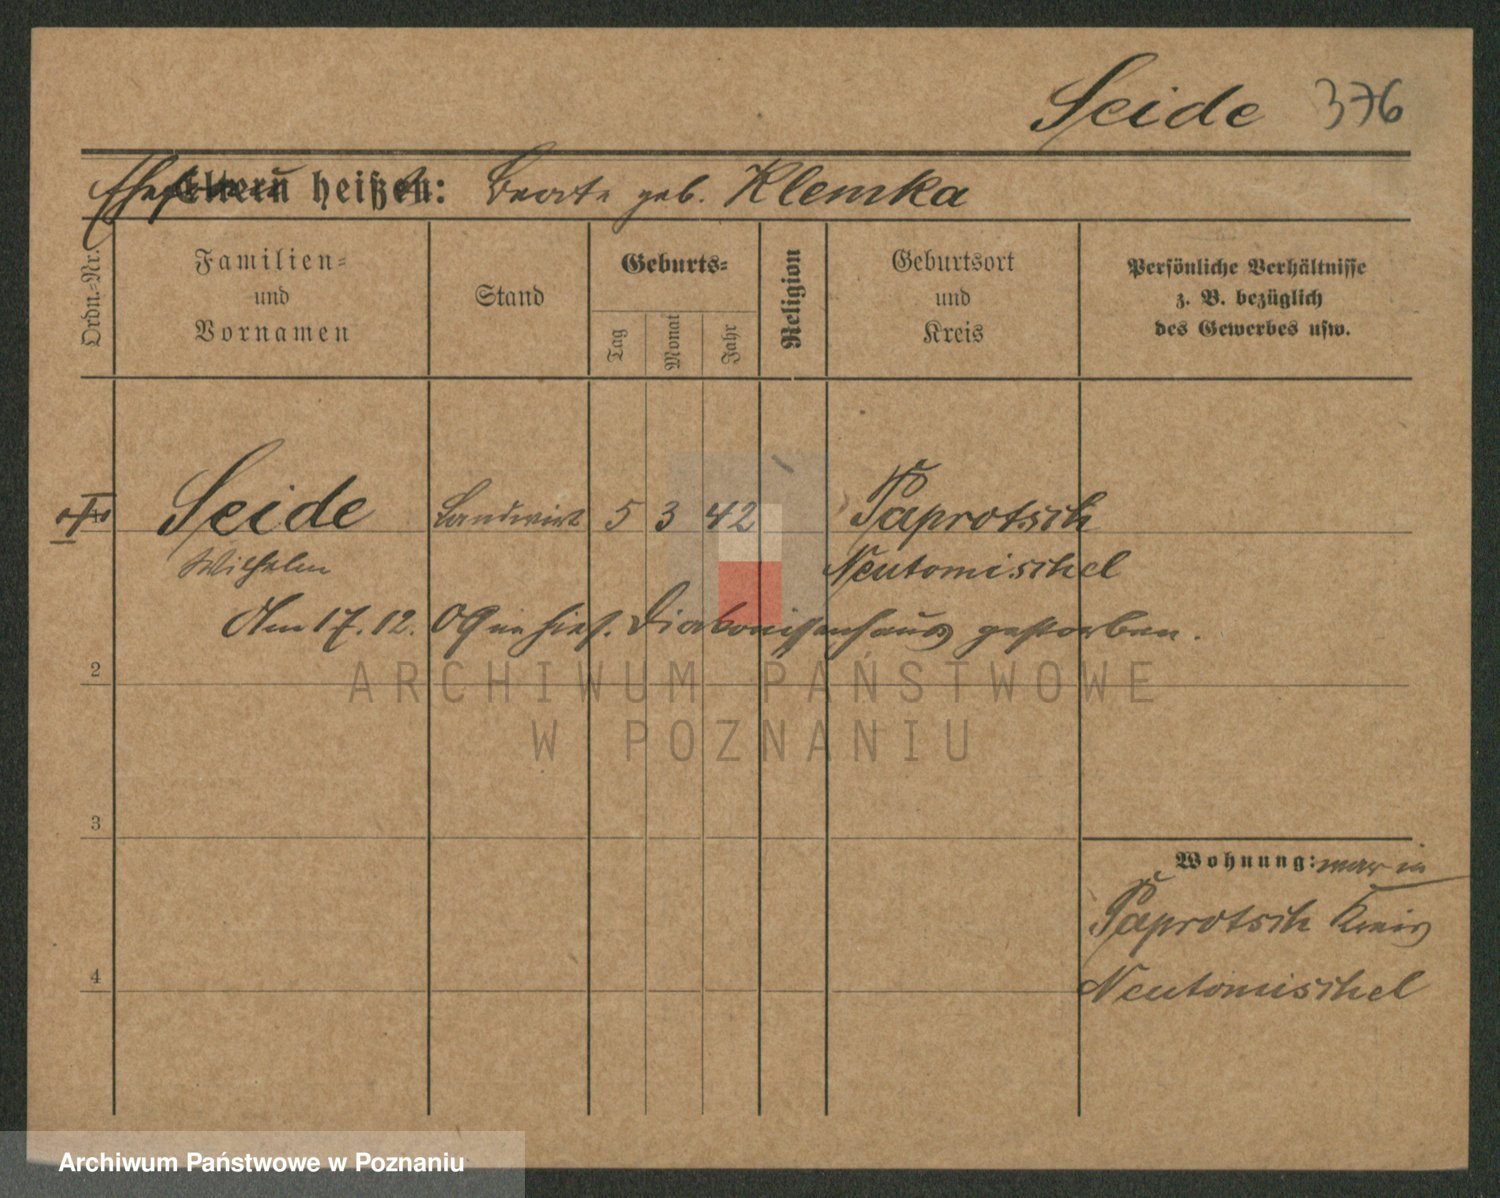 Seide 376
Ehefrau heißt: Beate geb. Klemka
Ordn.-Nr.
Familien-
und
Vornamen
Stand
Geburts-
Tag
Monat
Jahr
Religion
Geburtsort
und
Kreis
Persönliche Verhältnisse
z. B. bezüglich
des Gewerbes usw.
Seide Landwirt 5 3 42 Paprotsch
Wilhelm Neutomischel
Am 17.12.09 im hies. Diakonissenhaus gestorben.
2
3
4
Wohnung: war in
Paprotsch Kreis
Neutomischel
ARCHIWUM PAŃSTWOWE
W POZNANIU
Archiwum Państwowe w Poznaniu